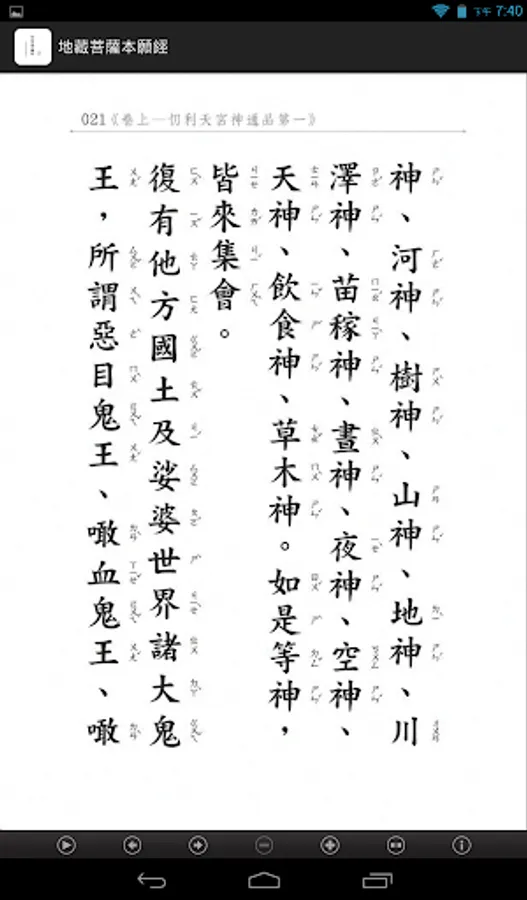 下午7:40
地藏菩薩本願經
021《卷上─忉利天宮神通品第一》
神、河神、樹神、山神、地神、川
澤神、苗稼神、晝神、夜神、空神、
天神、飲食神、草木神。如是等神，
皆來集會。
復有他方國土及娑婆世界諸大鬼
王，所謂惡目鬼王、噉血鬼王、噉